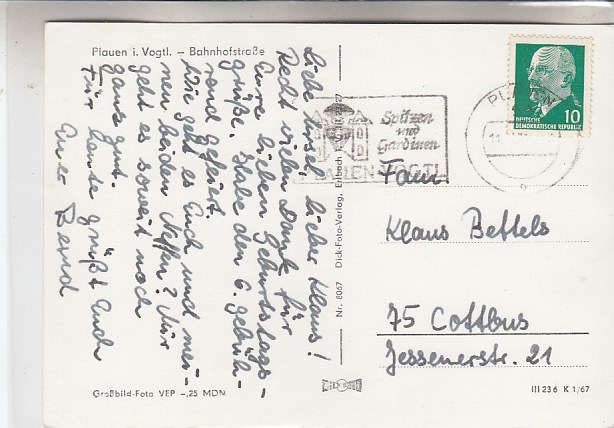 Plauen i. Vogtl. – Bahnhofstraße
Liebe Rosel, lieber Klaus!
Recht vielen Dank für
Eure lieben Geburtstags-
grüße. Habe den 6. gebüh-
rend gefeiert.
Wie geht es Euch und mei-
nen beiden Neffen? Mir
geht es soweit noch
ganz gut.
Für heute grüßt Euch
Euer Bernd
Großbild-Foto VEP –,25 MDN
Nr. 8067 Dick-Foto-Verlag, Erlbach
Spitzen
und
Gardinen
PLAUEN VOGTL
PLAUEN
10
DEUTSCHE
DEMOKRATISCHE REPUBLIK
Fam.
Klaus Bettels
75 Cottbus
Jessenerstr. 21
III 23 6 K 1/67